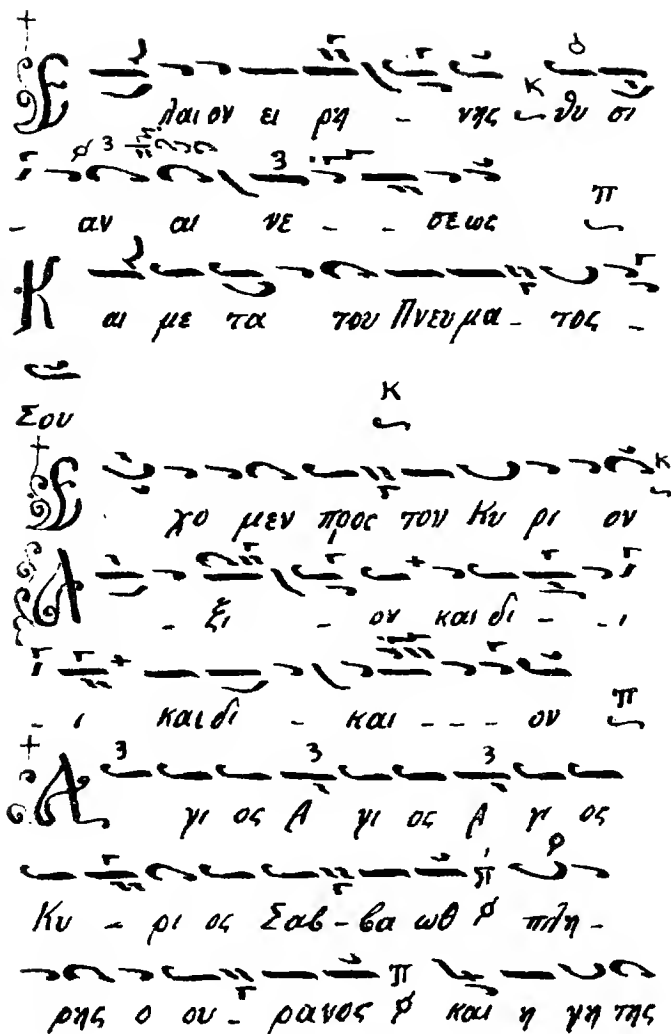 Ε λαι ον ει ρη - νης κ θυ σι
- αν αι νε - - σε ως π
Κ αι με τα του Πνευ μα - τος -
Σου κ
Ε χο μεν προς τον Κυ ρι ον κ
Α - ξι - ον και δι - - ι
- ι και δι - και - - - ον π
Α γι ος Α γι ος Α γι ος
Κυ - ρι ος Σαβ - βα ωθ πλη -
ρης ο ου - ρα νος και η γη της